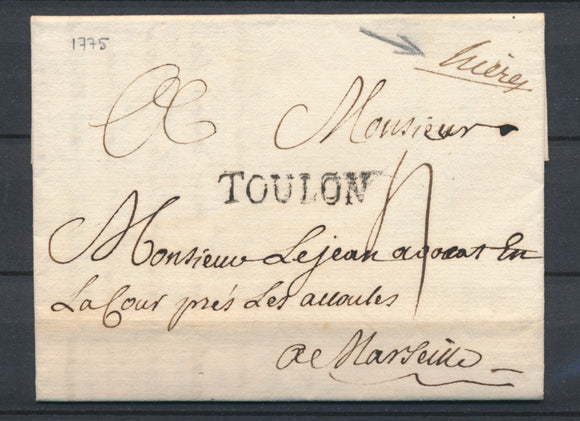 1775
hieres
A Monsieur
TOULON
4
Monsieur Lejean avocat En
La Cour prés Les accoules
A Marseille